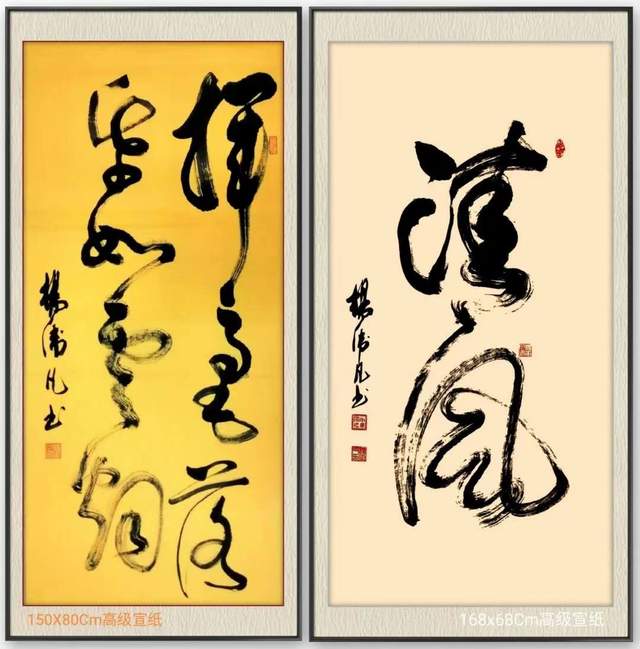 揮毫落
紙如雲烟
楊 凡书
150X80Cm高级宣纸
清风
楊 凡书
168x68Cm高级宣纸